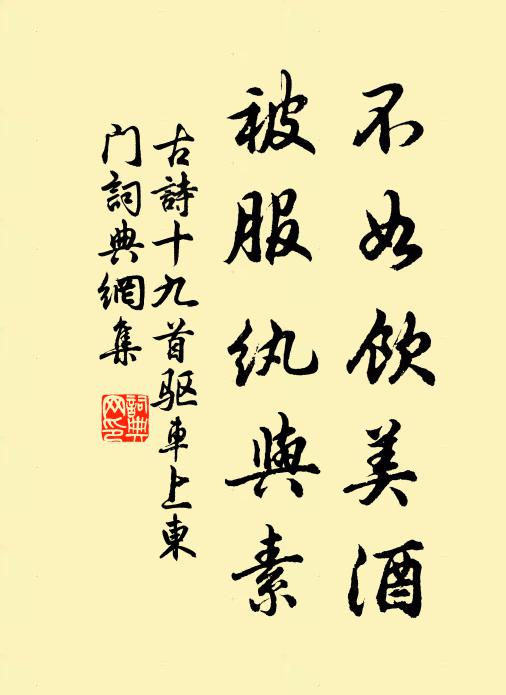 不如饮美酒
被服纨與素
古詩十九首驱車上東
门詞典網集
詞典
网印